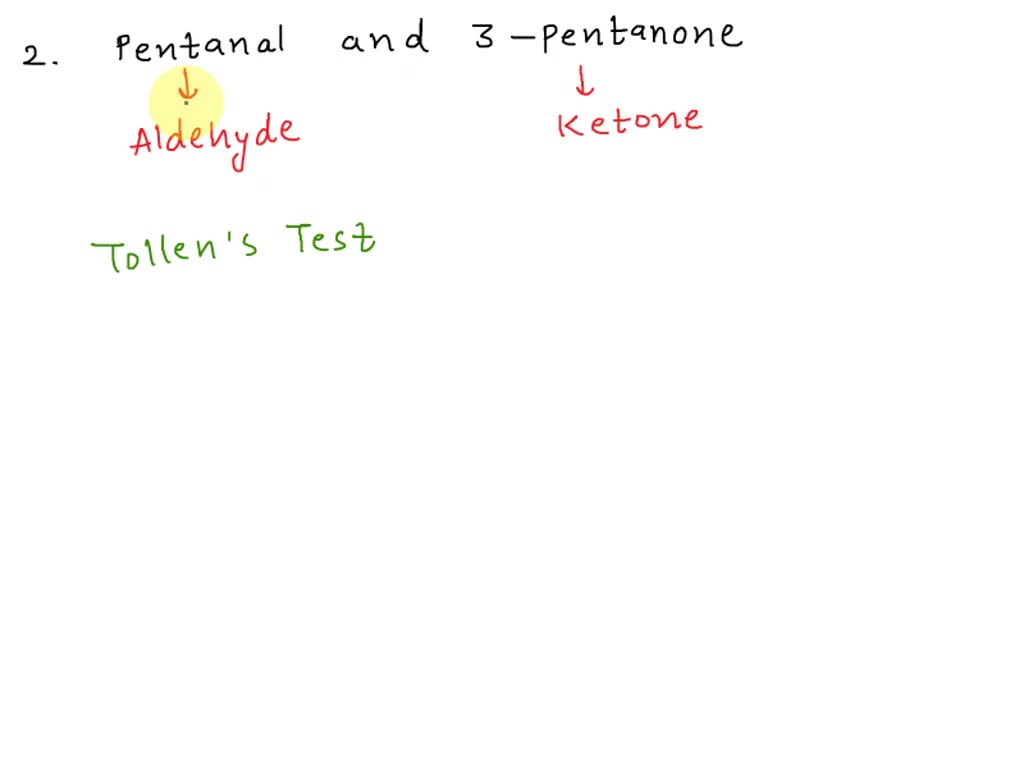 2. Pentanal and 3-pentanone
↓ ↓
Aldehyde Ketone
Tollen's Test